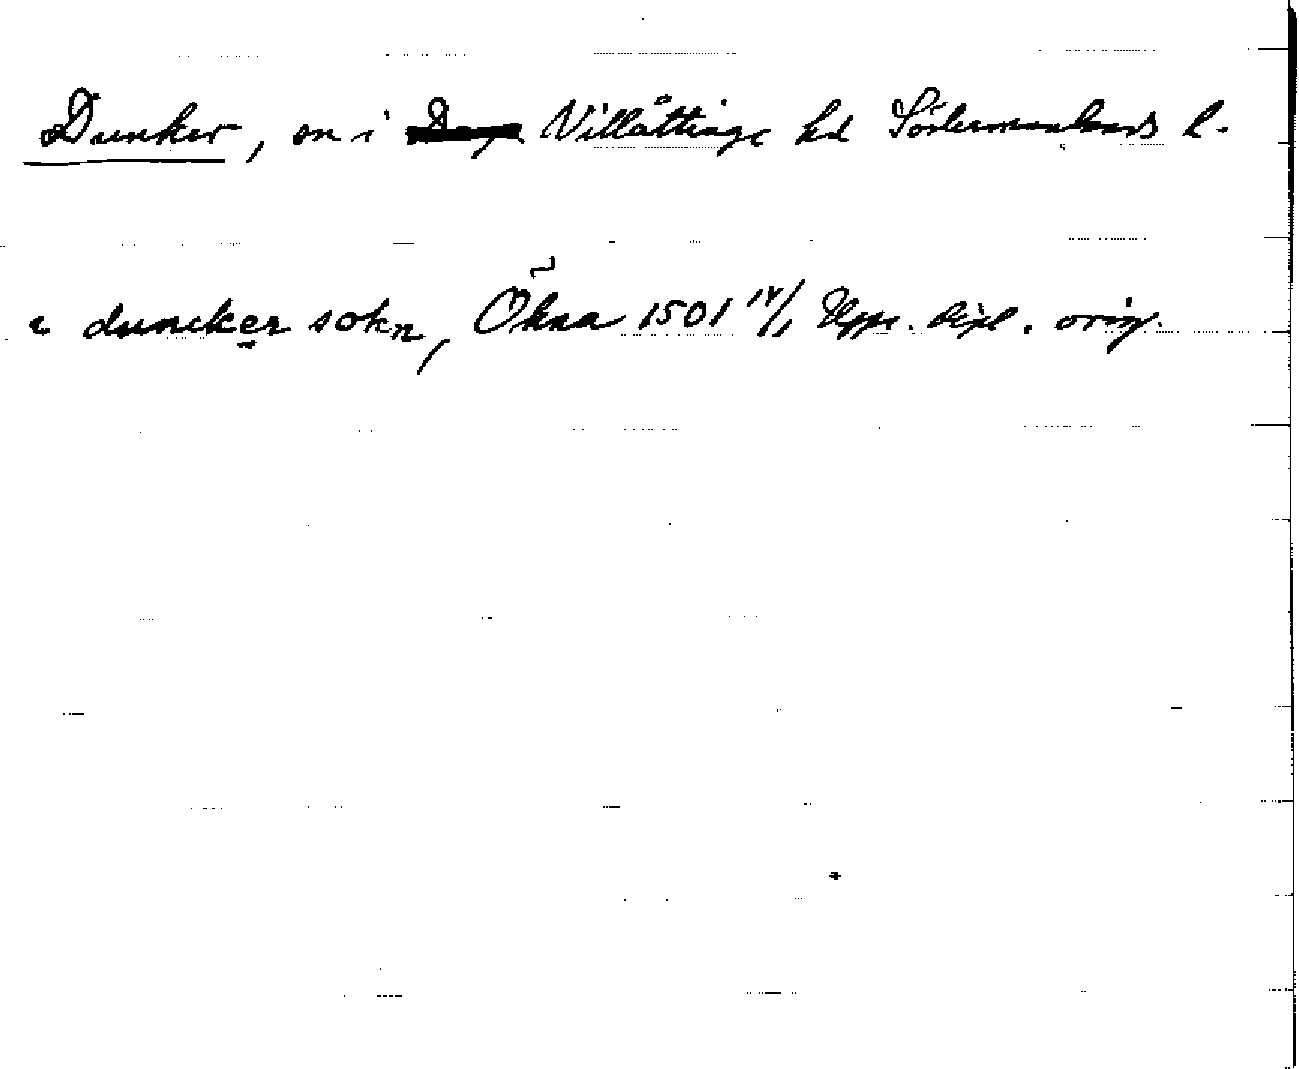 Dunker, sn i Villåttinge hd Södermanlands l.
i duncker sokn, Ökna 1501 14/1 Upps. dipl. orig.